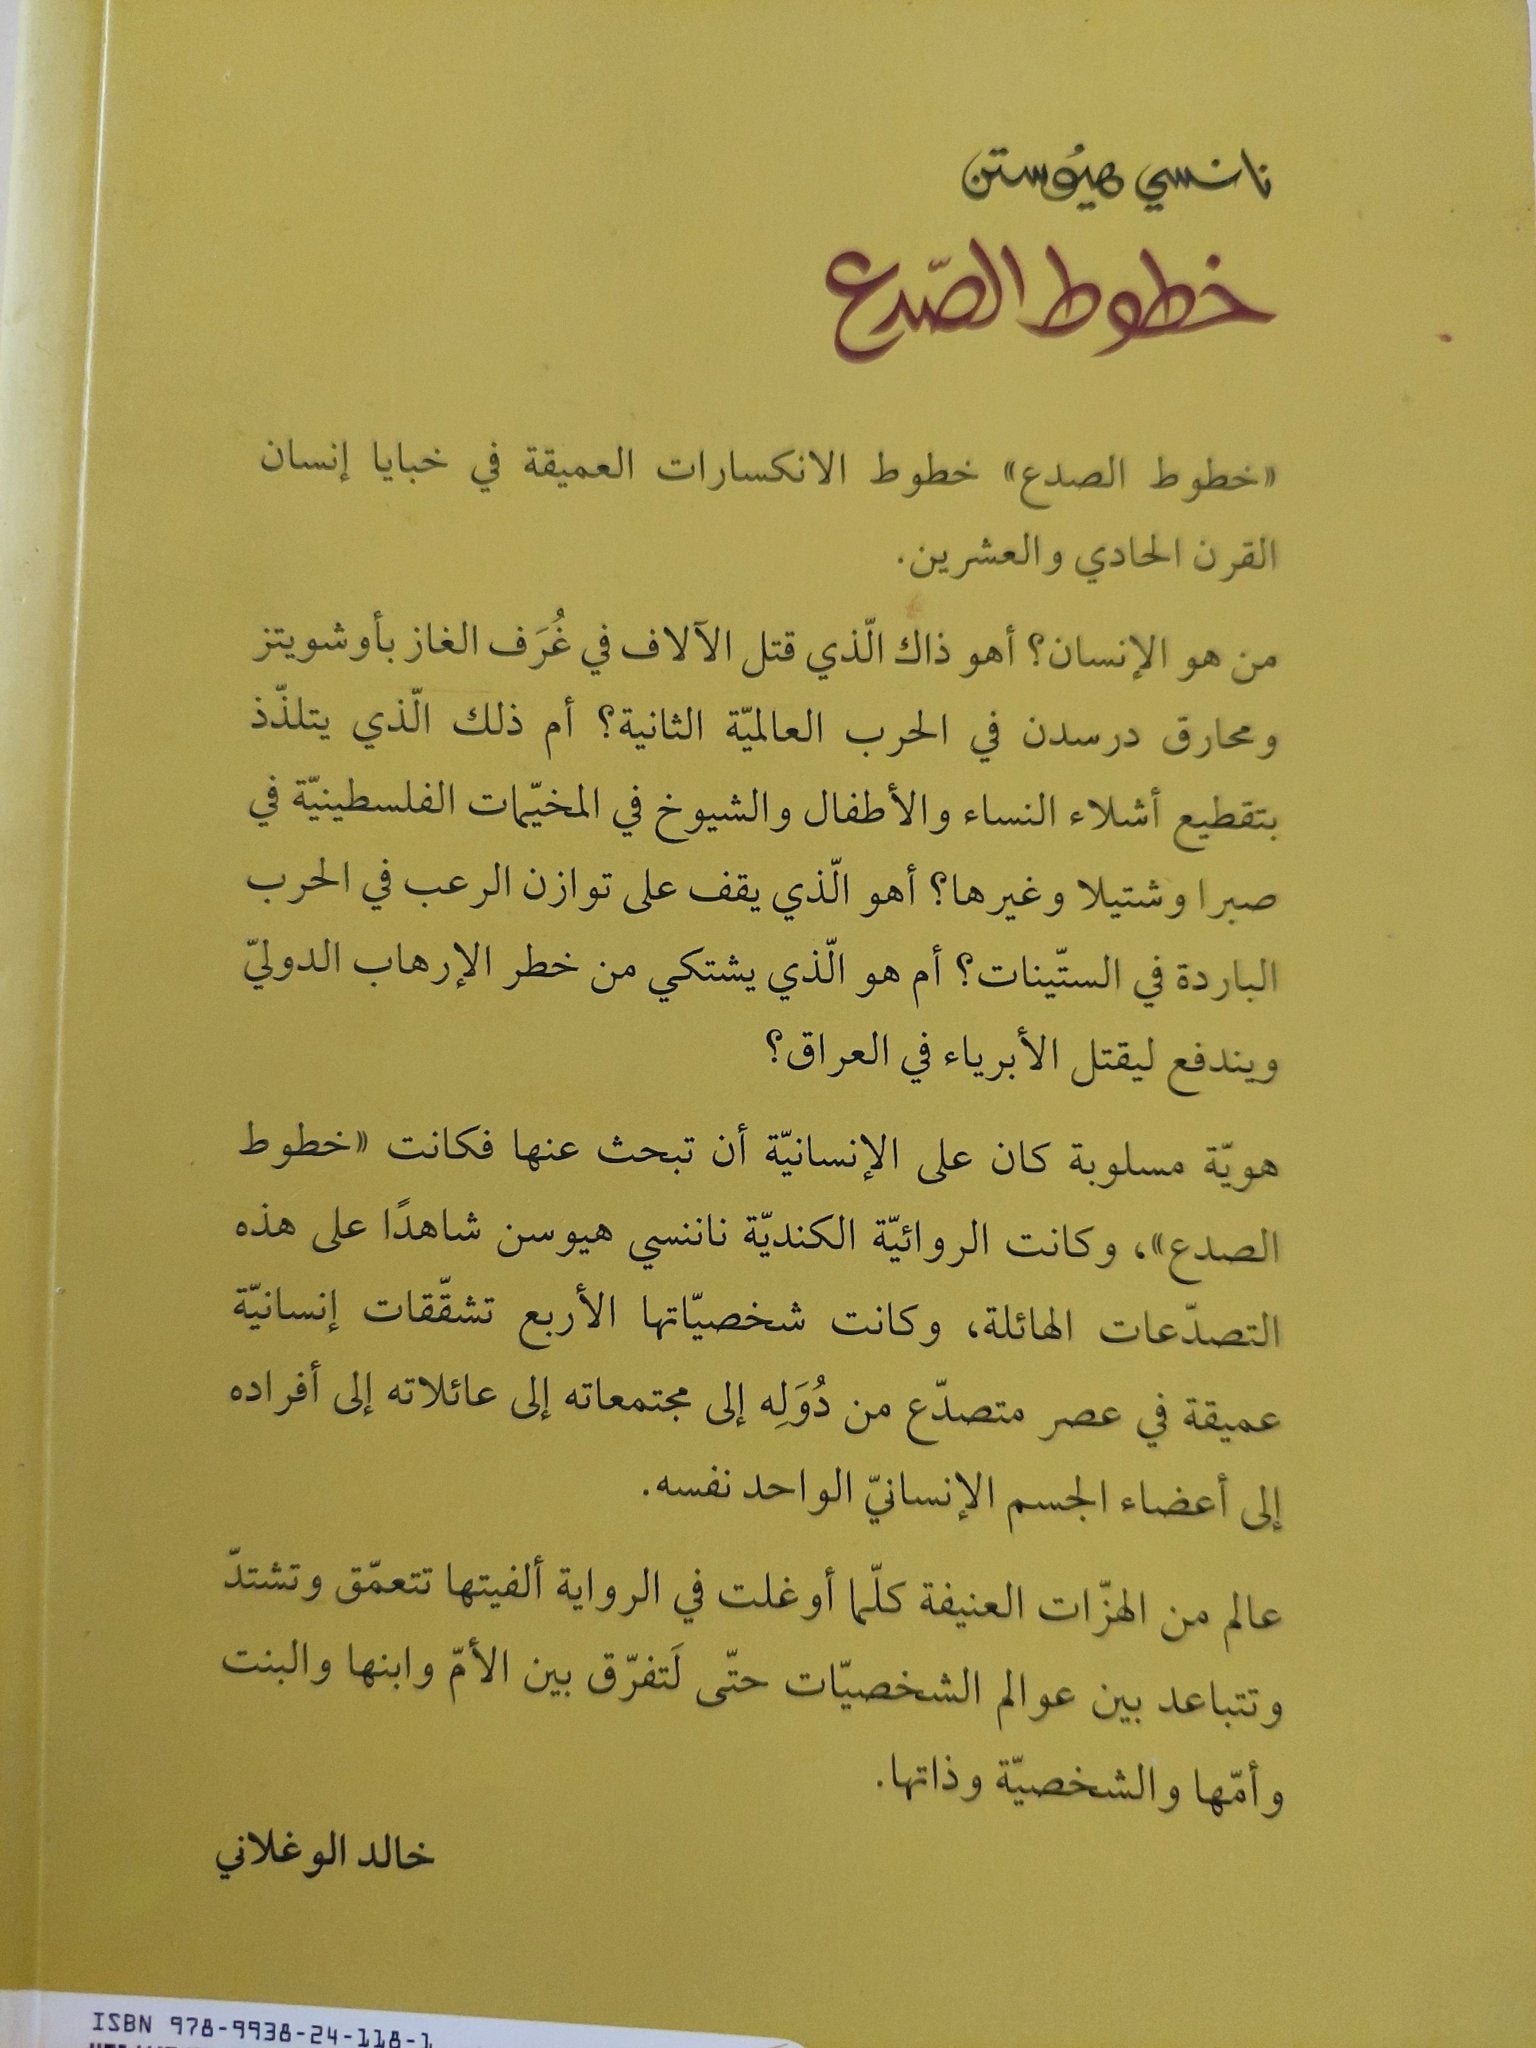 نانسي هيُوستن
خطوط الصّدع
«خطوط الصدع» خطوط الانكسارات العميقة في خبايا إنسان
القرن الحادي والعشرين.
من هو الإنسان؟ أهو ذاك الّذي قتل الآلاف في غُرَف الغاز بأوشويتز
ومحارق درسدن في الحرب العالميّة الثانية؟ أم ذلك الّذي يتلذّذ
بتقطيع أشلاء النساء والأطفال والشيوخ في المخيّمات الفلسطينيّة في
صبرا وشتيلا وغيرها؟ أهو الّذي يقف على توازن الرعب في الحرب
الباردة في الستّينات؟ أم هو الّذي يشتكي من خطر الإرهاب الدوليّ
ويندفع ليقتل الأبرياء في العراق؟
هويّة مسلوبة كان على الإنسانيّة أن تبحث عنها فكانت «خطوط
الصدع»، وكانت الروائيّة الكنديّة ناننسي هيوسن شاهدًا على هذه
التصدّعات الهائلة، وكانت شخصيّاتها الأربع تشقّقات إنسانيّة
عميقة في عصر متصدّع من دُوَلِه إلى مجتمعاته إلى عائلاته إلى أفراده
إلى أعضاء الجسم الإنسانيّ الواحد نفسه.
عالم من الهزّات العنيفة كلّما أوغلت في الرواية ألفيتها تتعمّق وتشتدّ
وتتباعد بين عوالم الشخصيّات حتّى لَتفرّق بين الأمّ وابنها والبنت
وأمّها والشخصيّة وذاتها.
خالد الوغلاني
ISBN 978-9938-24-118-1